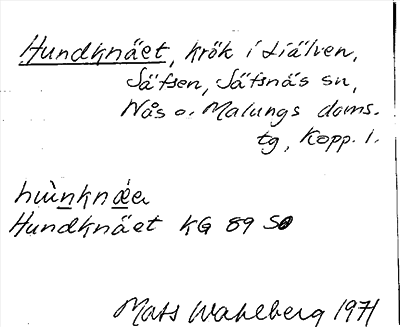 Hundknäet, krök i Liälven,
Säfsen, Säfsnäs sn,
Nås o. Malungs doms.
tg, Kopp. l.
hùnknæ̀a
Hundknäet KG 89 SO
Mats Wahlberg 1971